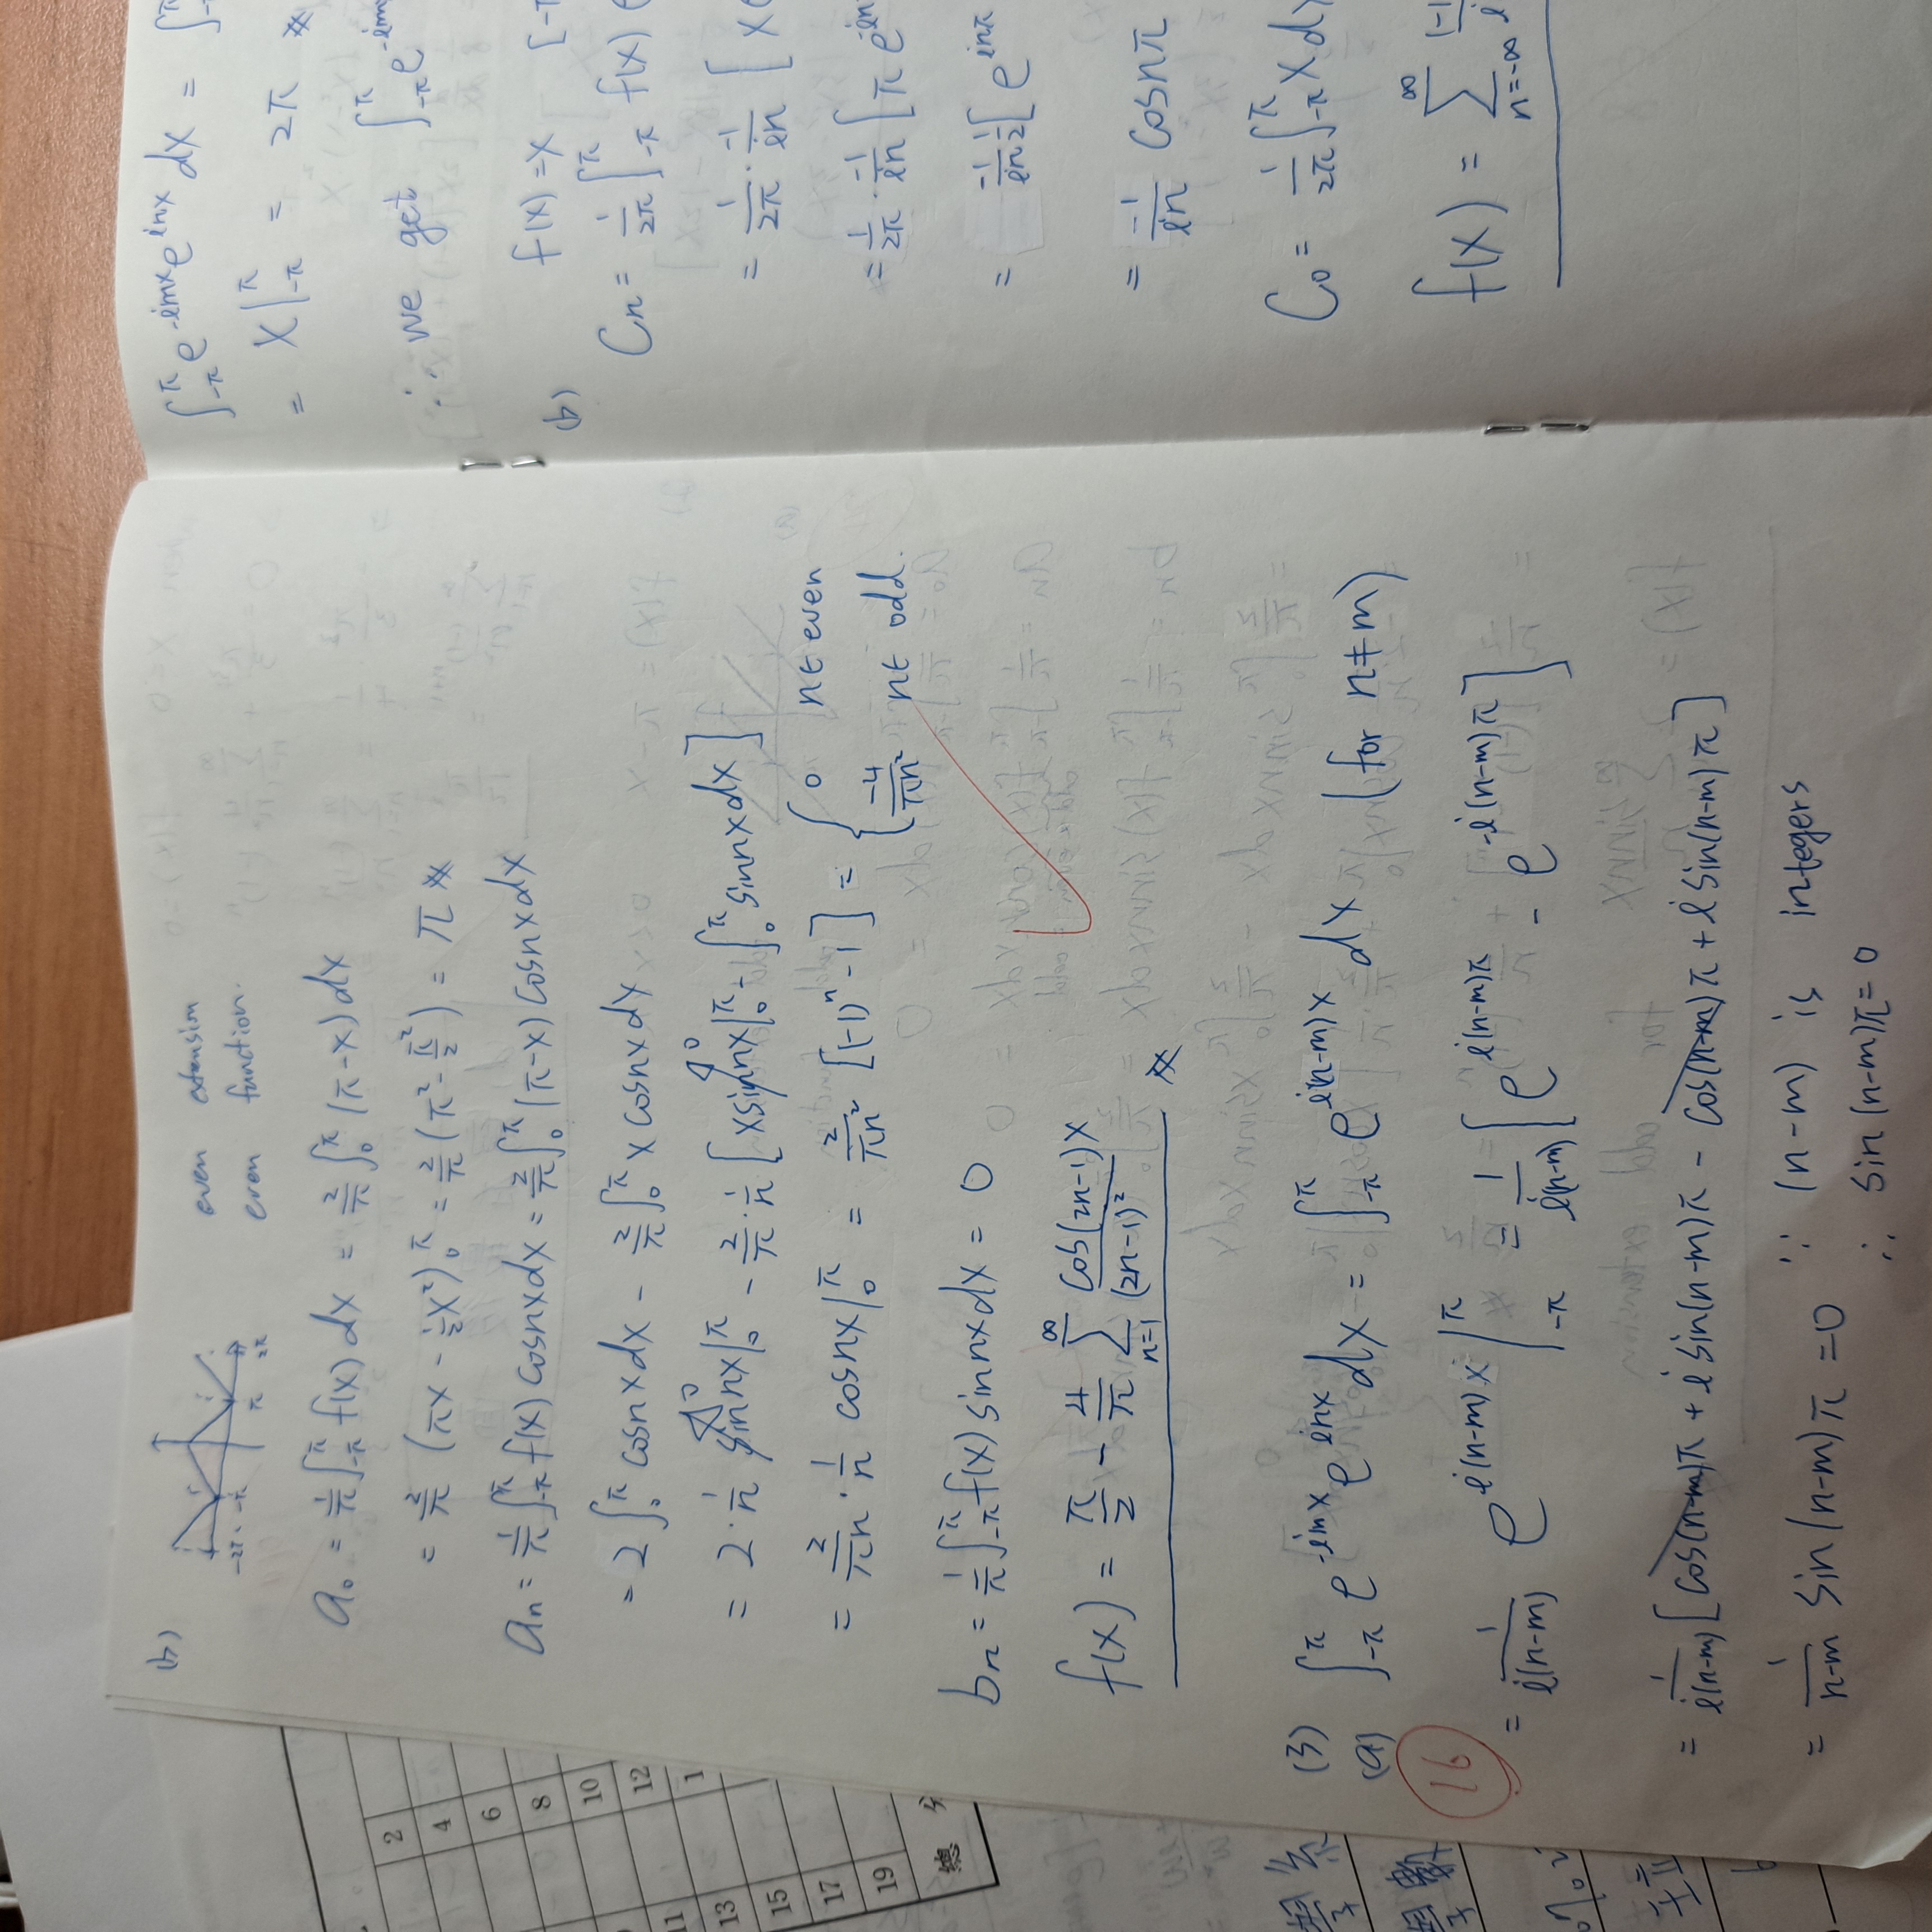 (b)
-2π -π π 2π
even extension
even function.
a₀ = 1/π ∫_{-π}^{π} f(x) dx = 2/π ∫_0^π (π-x) dx
= 2/π (πx - 1/2 x²)|_0^π = 2/π (π² - π²/2) = π ※
aₙ = 1/π ∫_{-π}^{π} f(x) cosnx dx = 2/π ∫_0^π (π-x) cosnx dx
= 2 ∫_0^π cosnx dx - 2/π ∫_0^π x cosnx dx
= 2 · 1/n sinnx|_0^π - 2/π · 1/n [ x sinnx|_0^π - ∫_0^π sinnx dx ]
= 2/(πn) · 1/n cosnx|_0^π = 2/(πn²) [(-1)ⁿ - 1] = { 0 n∈even
-4/(πn²) n∈odd.
bₙ = 1/π ∫_{-π}^{π} f(x) sinnx dx = 0
f(x) = π/2 - 4/π Σ_{n=1}^{∞} cos(2n-1)x/(2n-1)² ※
(3)
(a) ∫_{-π}^{π} e^{-imx} e^{inx} dx = ∫_{-π}^{π} e^{i(n-m)x} dx (for n≠m)
16
= 1/(i(n-m)) e^{i(n-m)x}|_{-π}^{π} = 1/(i(n-m)) [ e^{i(n-m)π} - e^{-i(n-m)π} ]
= 1/(i(n-m)) [ cos(n-m)π + i sin(n-m)π - cos(n-m)π + i sin(n-m)π ]
= 1/(n-m) sin(n-m)π = 0 ∵ (n-m) is integers
∴ sin(n-m)π = 0
∫_{-π}^{π} e^{-imx} e^{inx} dx = ∫
= x|_{-π}^{π} = 2π ※
∴ we get ∫_{-π}^{π} e^{-im
(b) f(x) = x [-π
Cₙ = 1/2π ∫_{-π}^{π} f(x)
= 1/2π · -1/in [ x
= 1/2π · -1/in [ π e^{-in
= -1/in · 1/2 [ e^{inπ
= -1/in cosnπ
C₀ = 1/2π ∫_{-π}^{π} x d
f(x) = Σ_{n=-∞}^{∞} (-1
2
4
6
8
10
12
11
13
15
17
19
總分